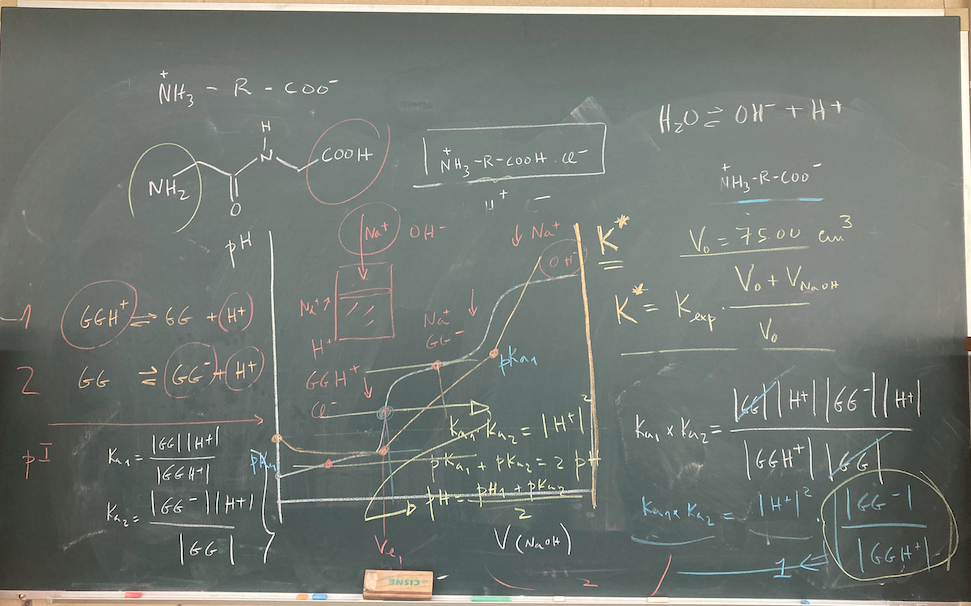 ⁺NH₃ - R - COO⁻
H
N
COOH
NH₂
O
⁺NH₃-R-COOH . Cl⁻
H⁺ —
H₂O ⇌ OH⁻ + H⁺
⁺NH₃-R-COO⁻
V₀ = 75.00 cm³
K* = Kexp . (V₀ + VNaOH) / V₀
pH
Na⁺ OH⁻
Na⁺ →
H⁺
↓ Na⁺
OH⁻
K*
Na⁺ ↓
GG⁻
GGH⁺ ↓
Cl⁻
pKa₁
pKa₁
-1 GGH⁺ ⇌ GG + H⁺
2 GG ⇌ GG⁻ + H⁺
pI
Ka₁ = |GG||H⁺| / |GGH⁺|
Ka₂ = |GG⁻||H⁺| / |GG|
Ka₁ Ka₂ = |H⁺|²
pKa₁ + pKa₂ = 2 pH
pH = (pH₁ + pKa₂) / 2
Ve₁
V (NaOH)
CISNE
2
Ka₁ x Ka₂ = |GG||H⁺||GG⁻||H⁺| / |GGH⁺||GG|
Ka₁ x Ka₂ = |H⁺|² . |GG⁻| / |GGH⁺|
1 ←